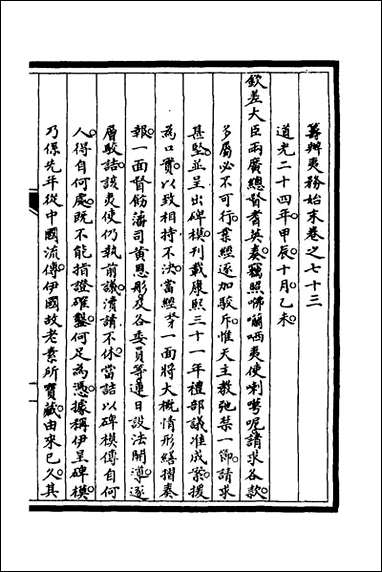 籌辦夷務始末卷之七十三
道光二十四年甲辰十月乙未
欽差大臣兩廣總督耆英奏竊照㖠嘞哂夷使喇𠹌呢請求各款
多屬必不可行業經逐加駁斥惟天主教弛禁一節請求
甚堅並呈出碑模刊載康熙三十一年禮部議准成案援
為口實以致相持不決當經李一面將大概情形繕摺奏
報一面督飭藩司黃恩彤及各委員等連日設法開導逐
層駁詰該夷使仍執前議瀆請不休當詰以碑模傳自何
人得自何處既不能指證確鑿何足為憑據稱伊呈碑模
乃係先年從中國流傳伊國故老素所寶藏由來已久其